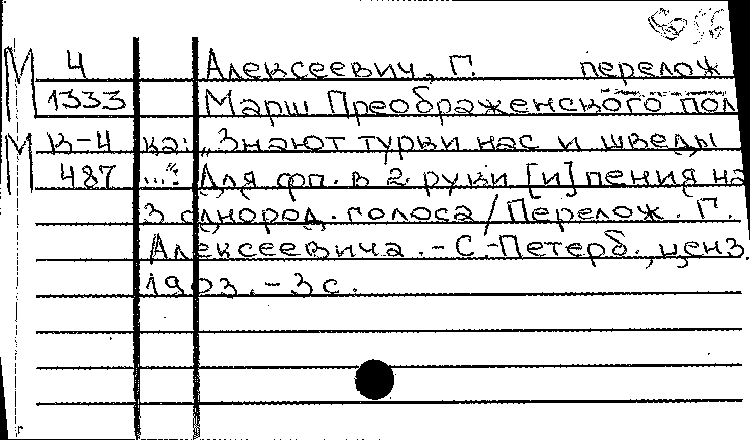 56
М 4 Алексеевич, Г. перелож
1333 Марш Преображенского пол
М В-4 ка: „Знают турки нас и шведы
487 ...“: Для фп. в 2 руки [и] пения на
3 однород. голоса / Перелож. Г.
Алексеевича. - С.-Петерб., ценз.
1903. - 3 с.